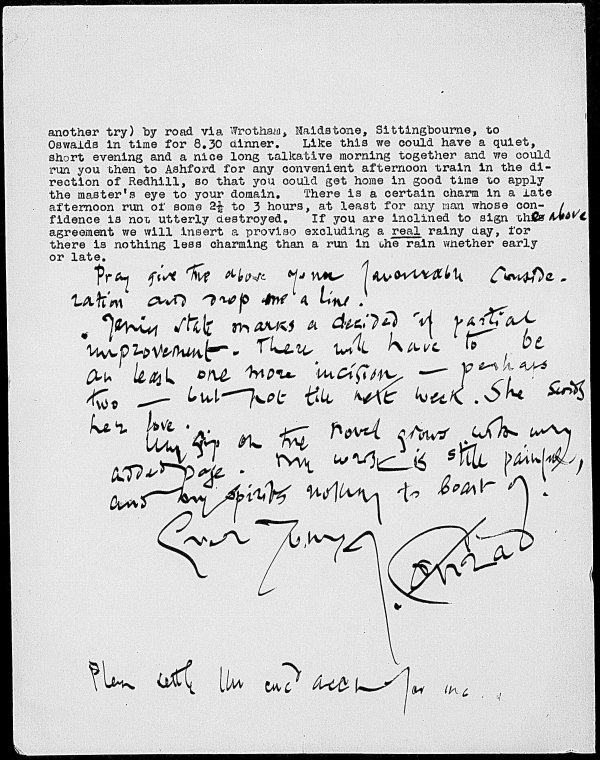 another try) by road via Wrotham, Maidstone, Sittingbourne, to
Oswalds in time for 8.30 dinner. Like this we could have a quiet,
short evening and a nice long talkative morning together and we could
run you then to Ashford for any convenient afternoon train in the di-
rection of Redhill, so that you could get home in good time to apply
the master's eye to your domain. There is a certain charm in a late
afternoon run of some 2½ to 3 hours, at least for any man whose con-
fidence is not utterly destroyed. If you are inclined to sign the above
agreement we will insert a proviso excluding a real rainy day, for
there is nothing less charming than a run in the rain whether early
or late.
Pray give the above your favourable conside-
ration and drop me a line.
Jessie's state marks a decided if partial
improvement. There will have to be
at least one more incision — perhaps
two — but not till next week. She sends
her love.
My grip on the novel grows with every
added page. My wrist is still painful,
and my spirits nothing to boast of.
Ever Yours
Conrad
Please settle the encd acct for me.